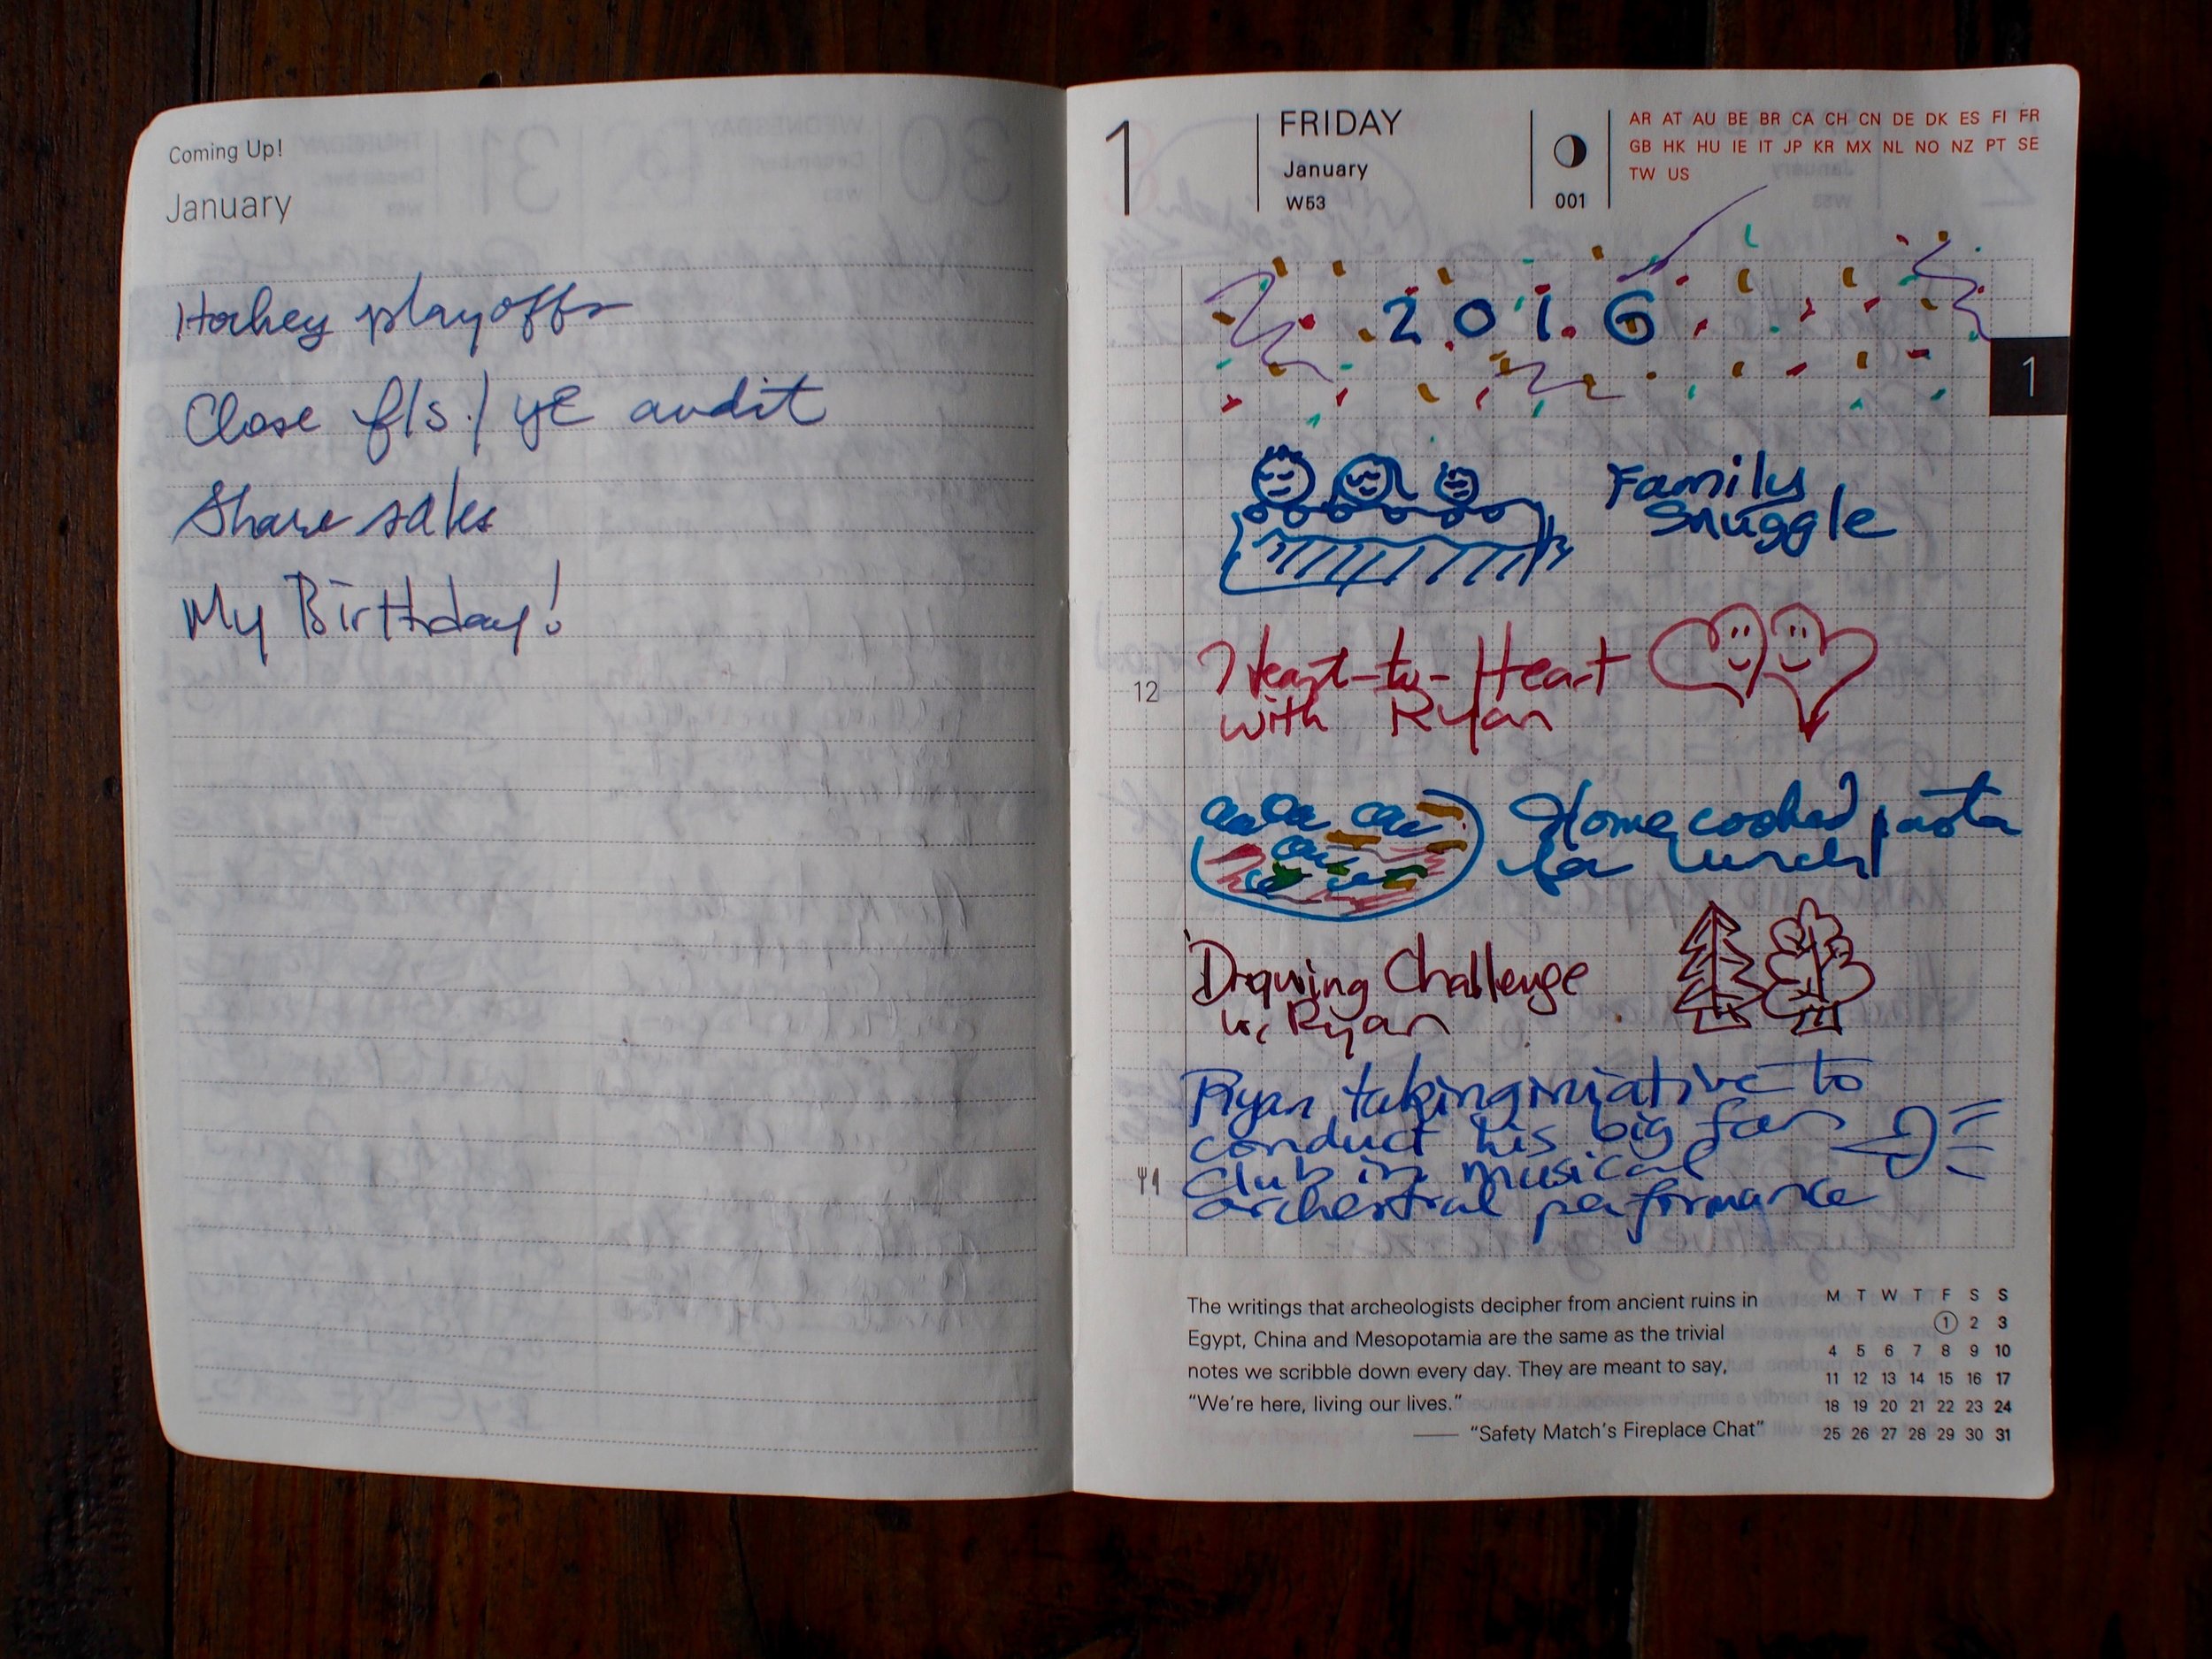 Coming Up!
January
Hockey playoffs
Close f/s / YE audit
Share sales
My Birthday!
1
FRIDAY
January
W53
001
AR AT AU BE BR CA CH CN DE DK ES FI FR
GB HK HU IE IT JP KR MX NL NO NZ PT SE
TW US
2016
1
Family
Snuggle
Heart-to-Heart
with Ryan
12
Home cooked pasta
for lunch!
Drawing Challenge
w/ Ryan
Ryan taking iniative to
conduct his big fan
club in musical
orchestral performance
The writings that archeologists decipher from ancient ruins in
Egypt, China and Mesopotamia are the same as the trivial
notes we scribble down every day. They are meant to say,
“We're here, living our lives.”
“Safety Match's Fireplace Chat”
M T W T F S S
1 2 3
4 5 6 7 8 9 10
11 12 13 14 15 16 17
18 19 20 21 22 23 24
25 26 27 28 29 30 31